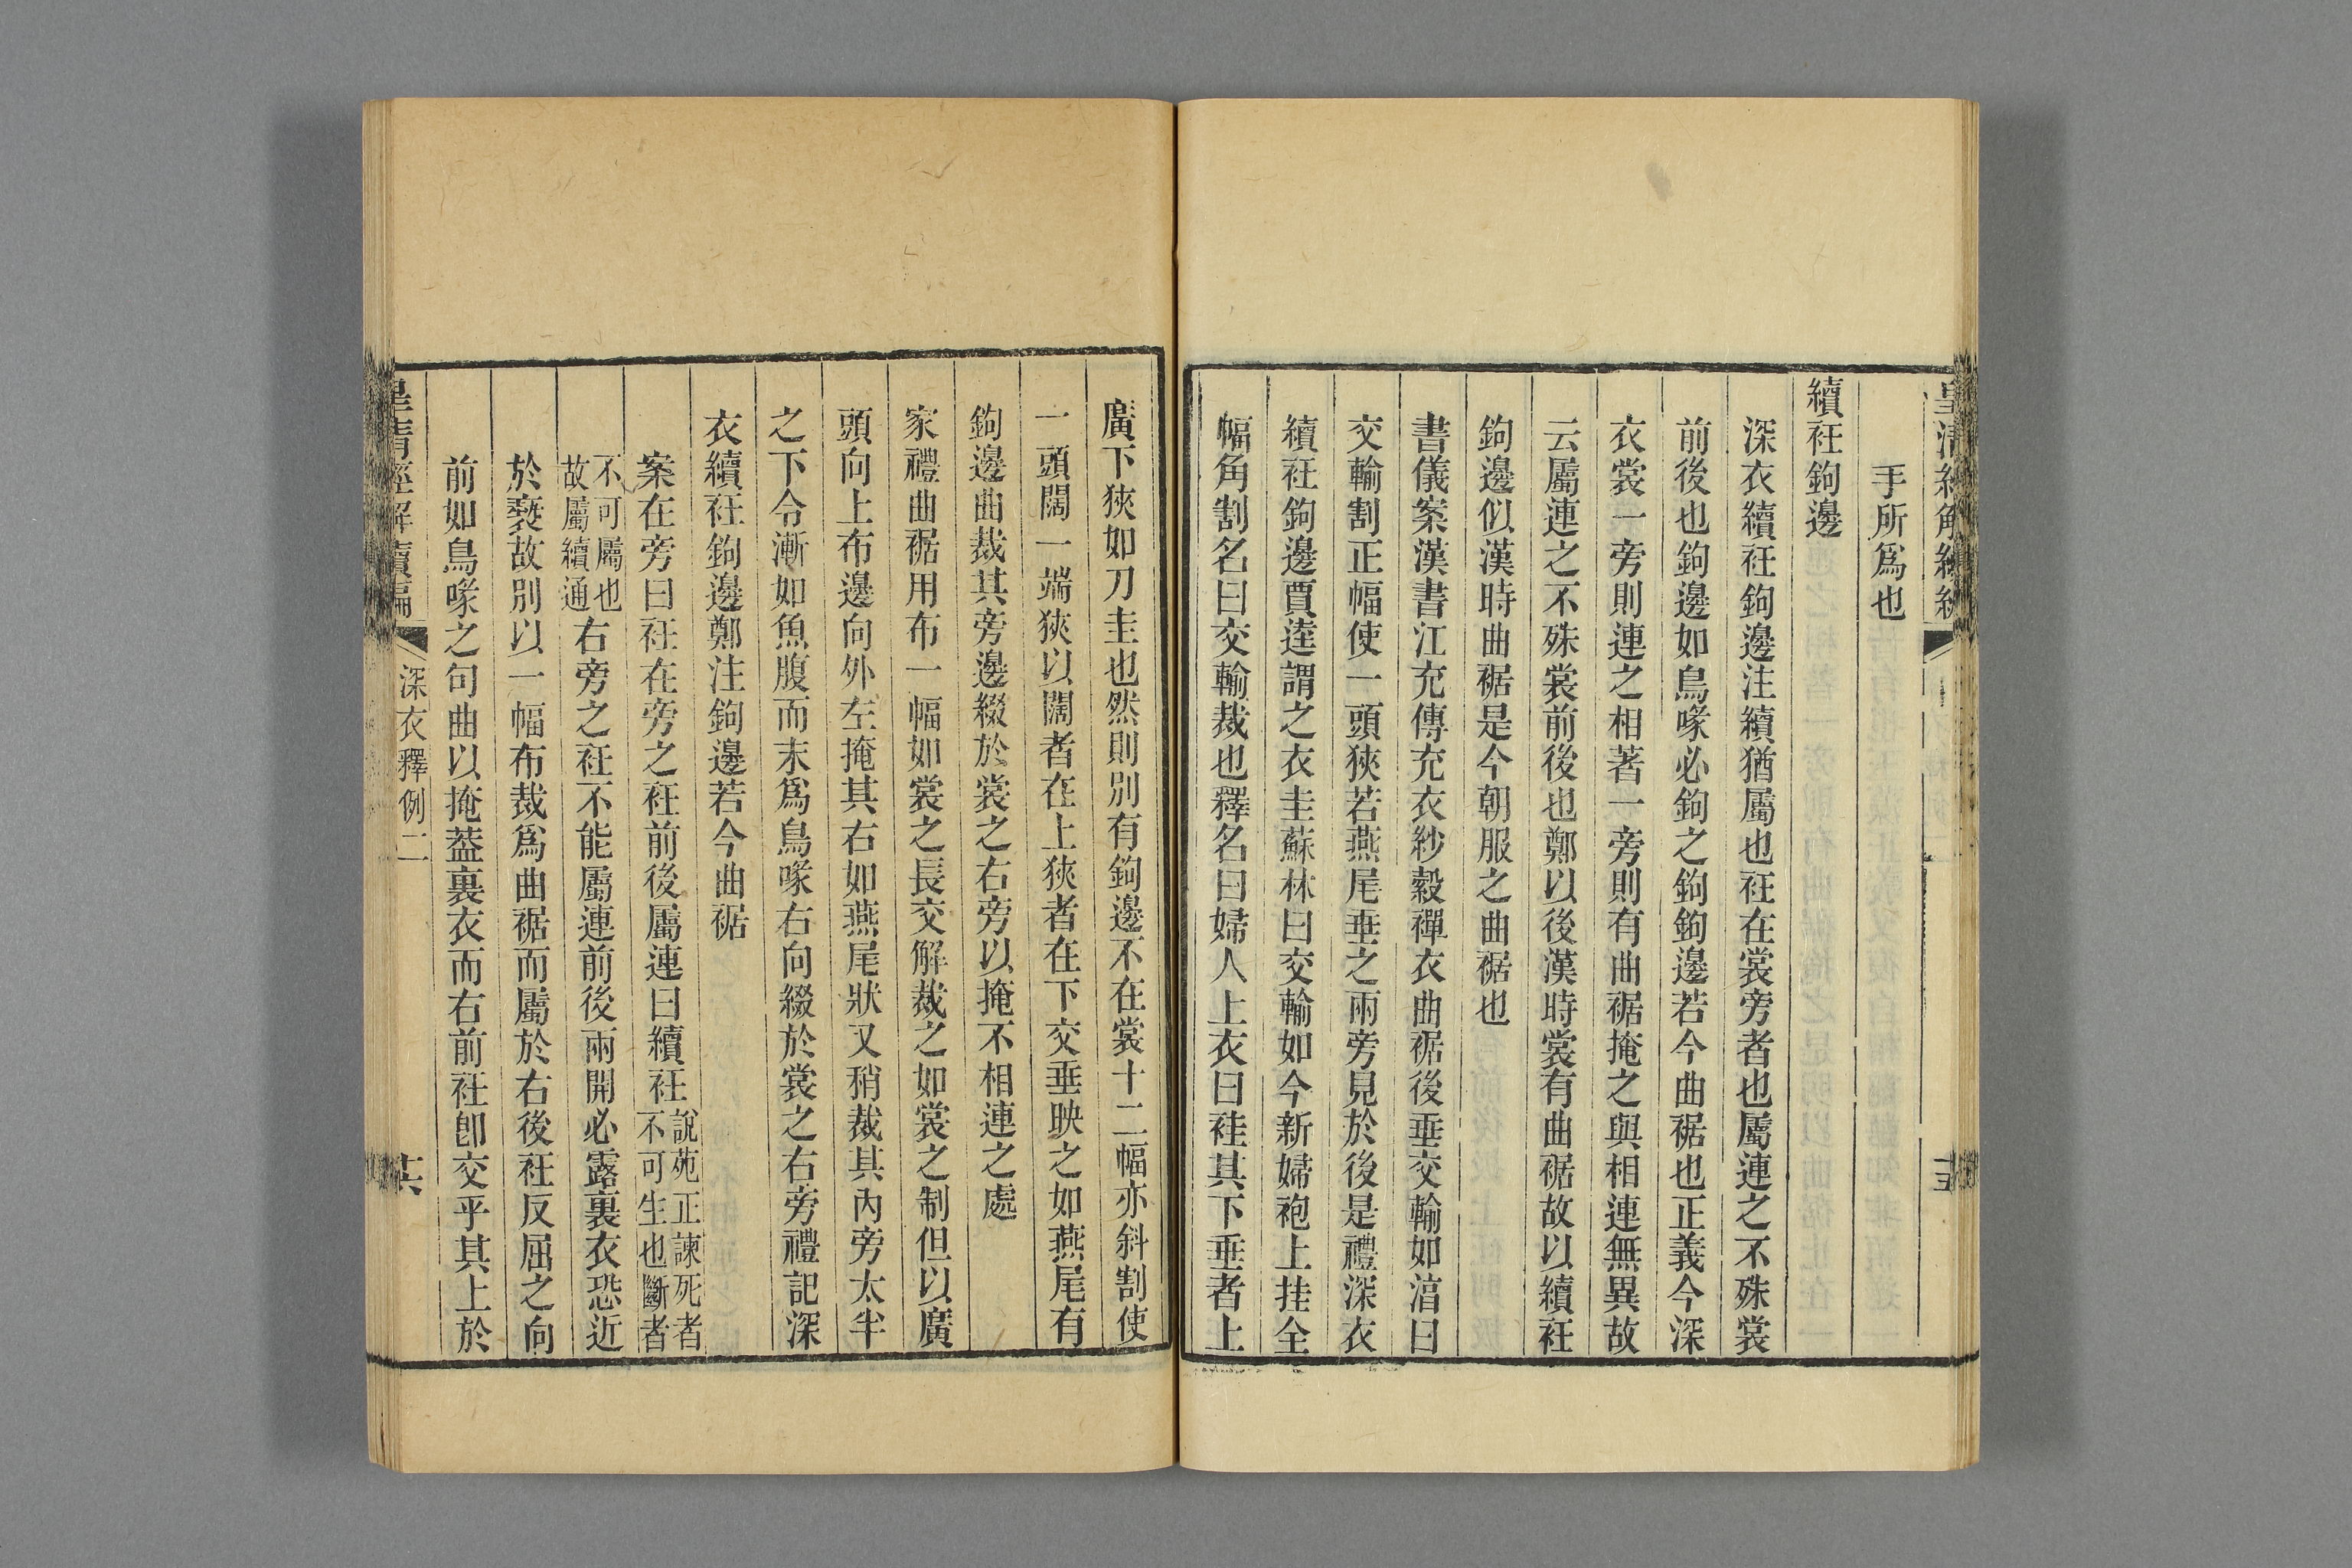 手所爲也
續衽鉤邊
深衣續衽鉤邊注續猶屬也衽在裳旁者也屬連之不殊裳
前後也鉤邊如鳥喙必鉤之鉤鉤邊若今曲裾也正義今深
衣裳一旁則連之相著一旁則有曲裾掩之與相連無異故
云屬連之不殊裳前後也鄭以後漢時裳有曲裾故以續衽
鉤邊似漢時曲裾是今朝服之曲裾也
書儀案漢書江充傳充衣紗縠襌衣曲裾後垂交輸如湻曰
交輸割正幅使一頭狹若燕尾垂之兩旁見於後是禮深衣
續衽鉤邊賈逵謂之衣圭蘇林曰交輸如今新婦袍上挂全
幅角割名曰交輸裁也釋名曰婦人上衣曰袿其下垂者上
廣下狹如刀圭也然則別有鉤邊不在裳十二幅亦斜割使
一頭闊一端狹以闊者在上狹者在下交垂映之如燕尾有
鉤邊曲裁其旁邊綴於裳之右旁以掩不相連之處
家禮曲裾用布一幅如裳之長交解裁之如裳之制但以廣
頭向上布邊向外左掩其右如燕尾狀又稍裁其內旁太半
之下令漸如魚腹而末爲鳥喙右向綴於裳之右旁禮記深
衣續衽鉤邊鄭注鉤邊若今曲裾
案在旁曰衽在旁之衽前後屬連曰續衽說苑正諫死者
不可生也斷者
不可屬也
故屬續通右旁之衽不能屬連前後兩開必露裏衣恐近
於褻故別以一幅布裁爲曲裾而屬於右後衽反屈之向
前如鳥喙之句曲以掩葢裏衣而右前衽卽交乎其上於
皇清經解續編
深衣釋例二